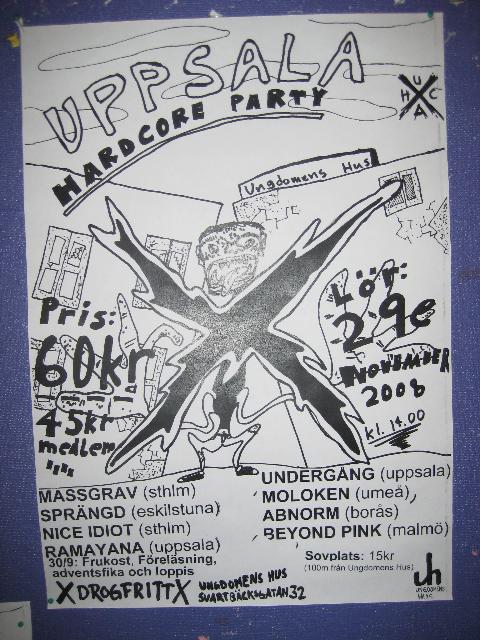 UPPSALA
HARDCORE PARTY
U
H X C
A
Ungdomens Hus
Pris:
60kr
45kr
medlem
Lör:
29e
NOVEMBER
2008
kl. 14.00
MASSGRAV (sthlm)
SPRÄNGD (eskilstuna)
NICE IDIOT (sthlm)
RAMAYANA (uppsala)
UNDERGÅNG (uppsala)
MOLOKEN (umeå)
ABNORM (borås)
BEYOND PINK (malmö)
30/9: Frukost, Föreläsning,
adventsfika och loppis
Sovplats: 15kr
(100m från Ungdomens Hus)
XDROGFRITTX
UNGDOMENS HUS
SVARTBÄCKSGATAN 32
uh
UNGDOMENS
HUS